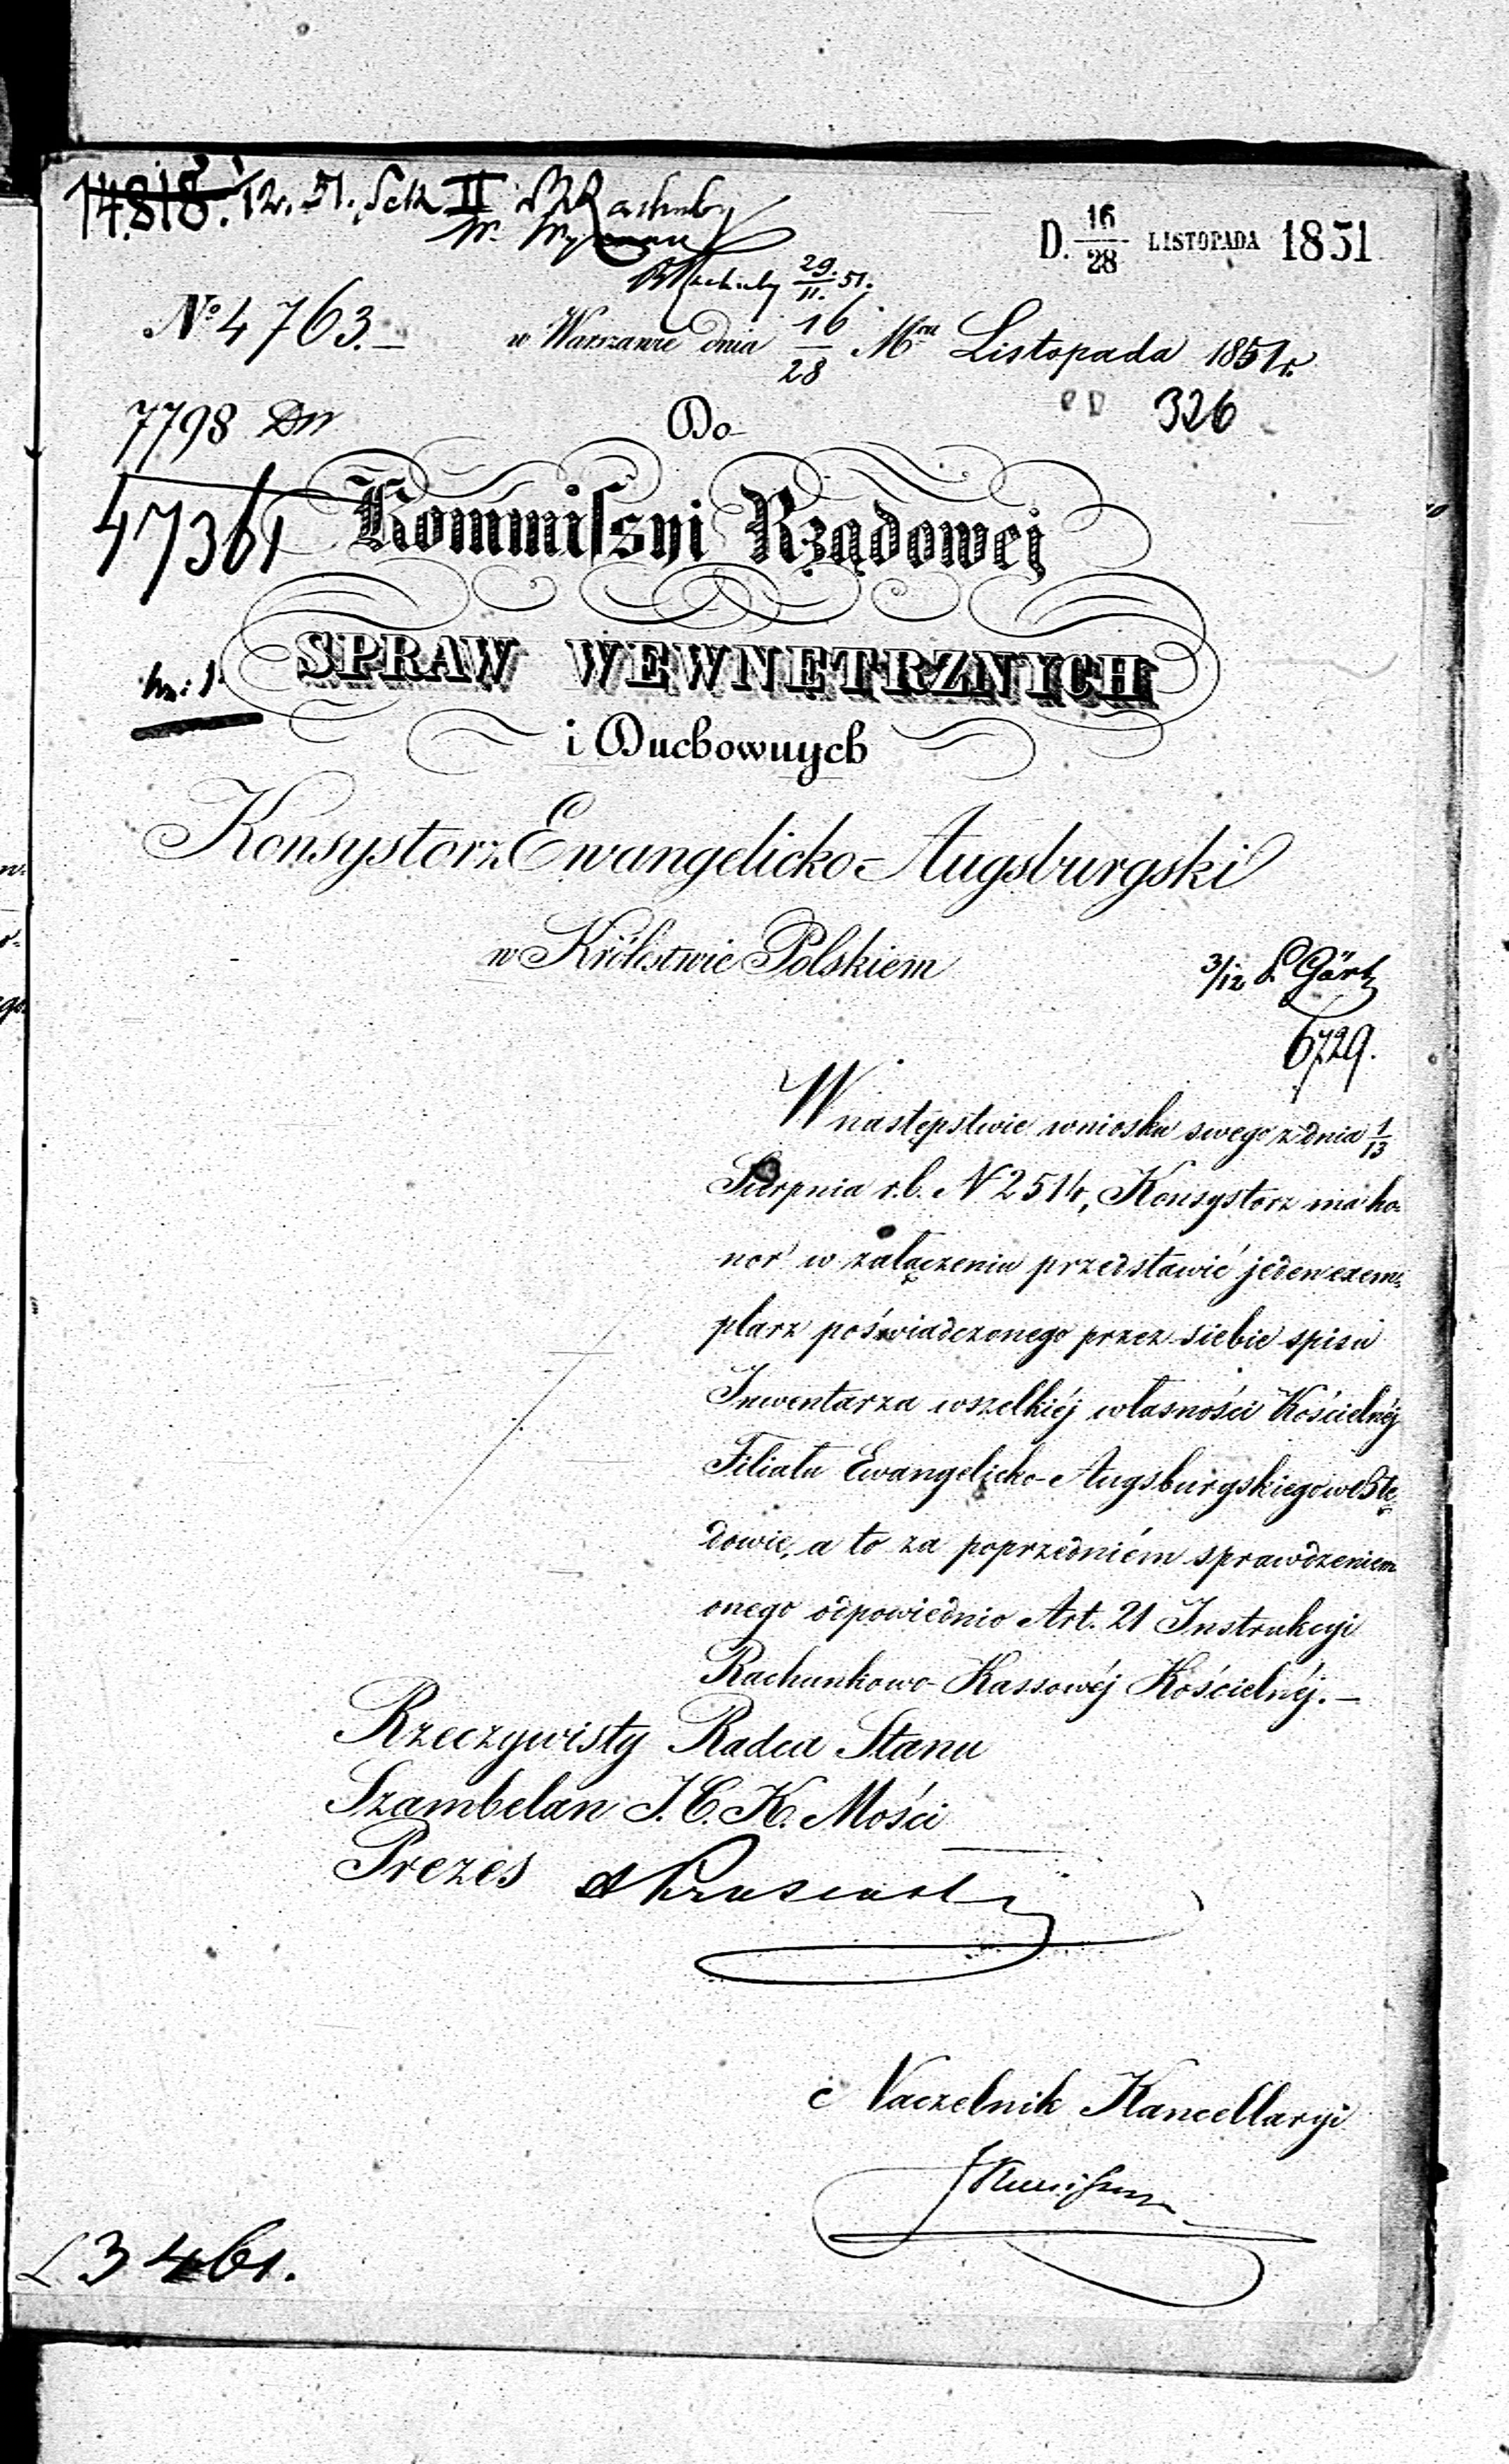 14.818. 1/12. 51. Sek II
D. 16/28 LISTOPADA 1851
29/11. 51.
№ 4763.—
w Warszawie dnia 16/28 Mca Listopada 1851 r.
326
7798
Do
47361
Kommissyi Rządowej
SPRAW WEWNĘTRZNYCH
i Duchownych
Konsystorz Ewangelicko-Augsburgski
w Królestwie Polskiem
3/12 Gärtz
6729.
W następstwie wniosku swego z dnia 1/13
Sierpnia r.b. N 2514, Konsystorz ma ho-
nor w załączeniu przedstawić jeden exem-
plarz poświadczonego przez siebie spisu
Inwentarza wszelkiéj własności Kościelnéj
Filiału Ewangelicko-Augsburgskiego w
dowie, a to za poprzedniém sprawdzeniem
onego odpowiednio Art. 21 Instrukcyi
Rachunkowo-Kassowéj Kościelnéj.—
Rzeczywisty Radca Stanu
Szambelan J.C.K. Mości
Prezes
Naczelnik Kancellaryi
3461.